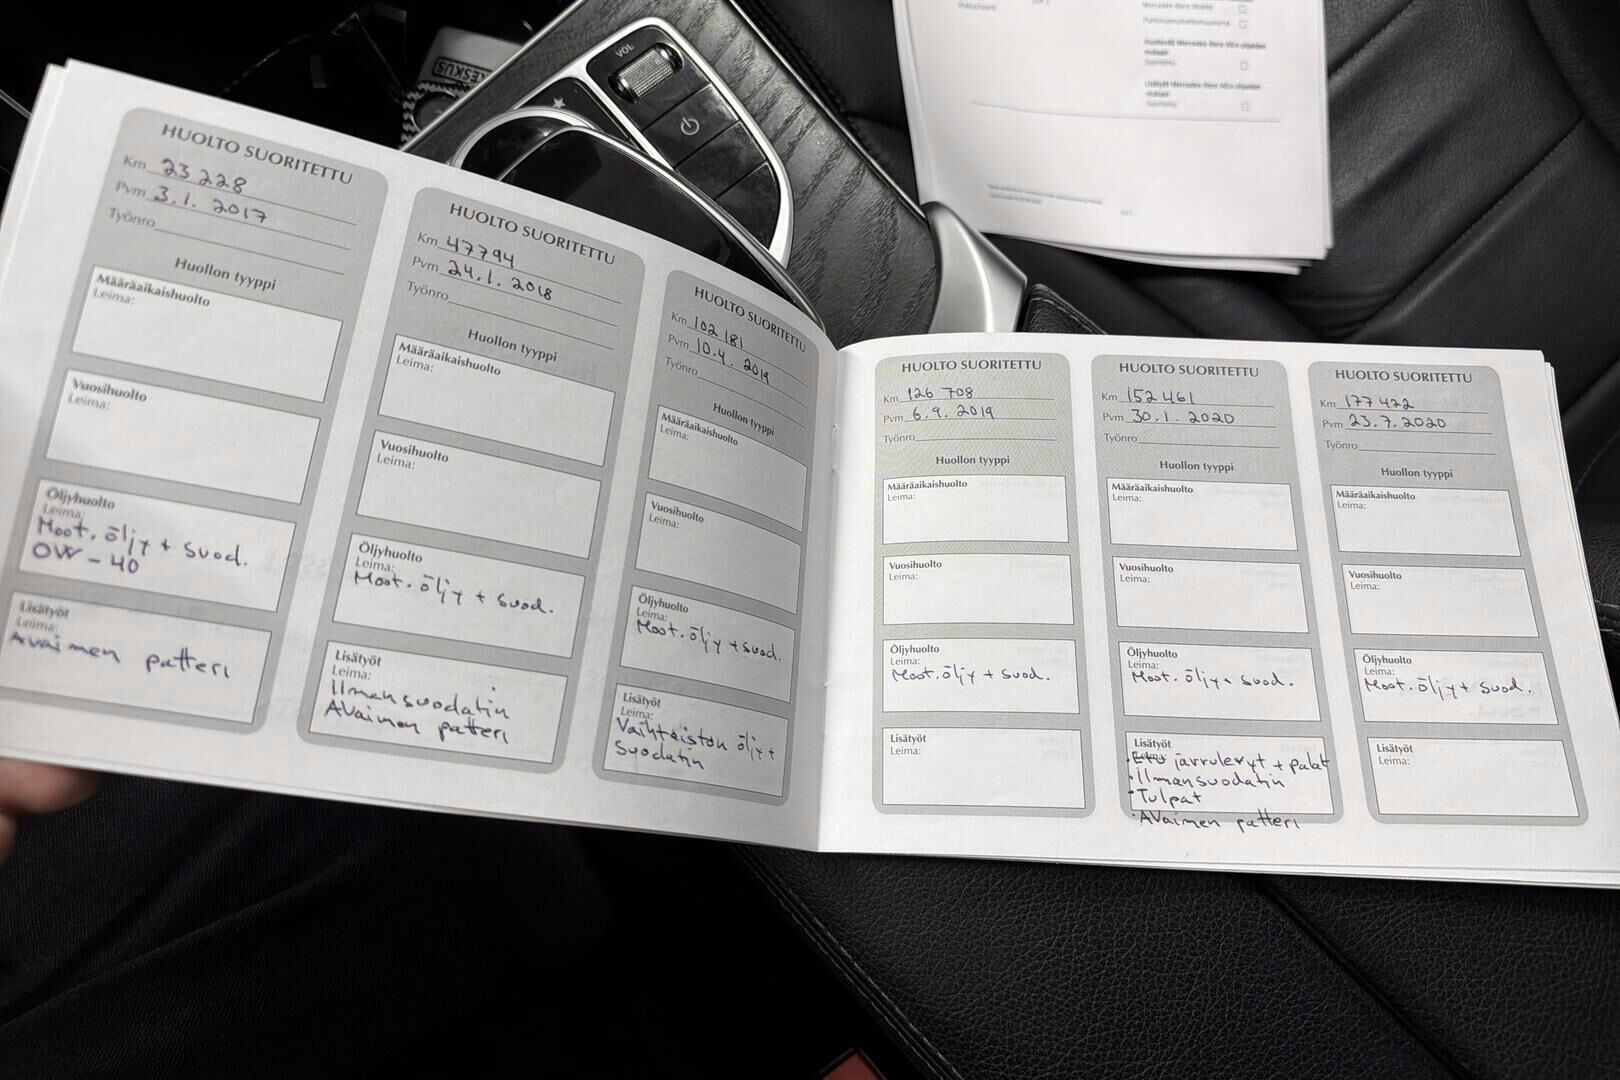 HUOLTO SUORITETTU
Km 23 228
Pvm 3.1. 2017
Työnro
Huollon tyyppi
Määräaikaishuolto
Leima:
Vuosihuolto
Leima:
Öljyhuolto
Leima:
Moot. öljy + suod.
OW-40
Lisätyöt
Leima:
Avaimen patteri
HUOLTO SUORITETTU
Km 47794
Pvm 24.1. 2018
Työnro
Huollon tyyppi
Määräaikaishuolto
Leima:
Vuosihuolto
Leima:
Öljyhuolto
Leima:
Moot. öljy + suod.
Lisätyöt
Leima:
Ilmansuodatin
Avaimen patteri
HUOLTO SUORITETTU
Km 102 181
Pvm 10.4. 2019
Työnro
Huollon tyyppi
Määräaikaishuolto
Leima:
Vuosihuolto
Leima:
Öljyhuolto
Leima:
Moot. öljy + suod.
Lisätyöt
Leima:
Vaihteiston öljy +
suodatin
HUOLTO SUORITETTU
Km 126 708
Pvm 6.9. 2019
Työnro
Huollon tyyppi
Määräaikaishuolto
Leima:
Vuosihuolto
Leima:
Öljyhuolto
Leima:
Moot. öljy + suod.
Lisätyöt
Leima:
HUOLTO SUORITETTU
Km 152 461
Pvm 30.1. 2020
Työnro
Huollon tyyppi
Määräaikaishuolto
Leima:
Vuosihuolto
Leima:
Öljyhuolto
Leima:
Moot. öljy + suod.
Lisätyöt
Leima:
· Etu jarrulevyt + palat
· Ilmansuodatin
· Tulpat
· Avaimen patteri
HUOLTO SUORITETTU
Km 177 422
Pvm 23.7. 2020
Työnro
Huollon tyyppi
Määräaikaishuolto
Leima:
Vuosihuolto
Leima:
Öljyhuolto
Leima:
Moot. öljy + suod.
Lisätyöt
Leima:
VOL
KESKUS